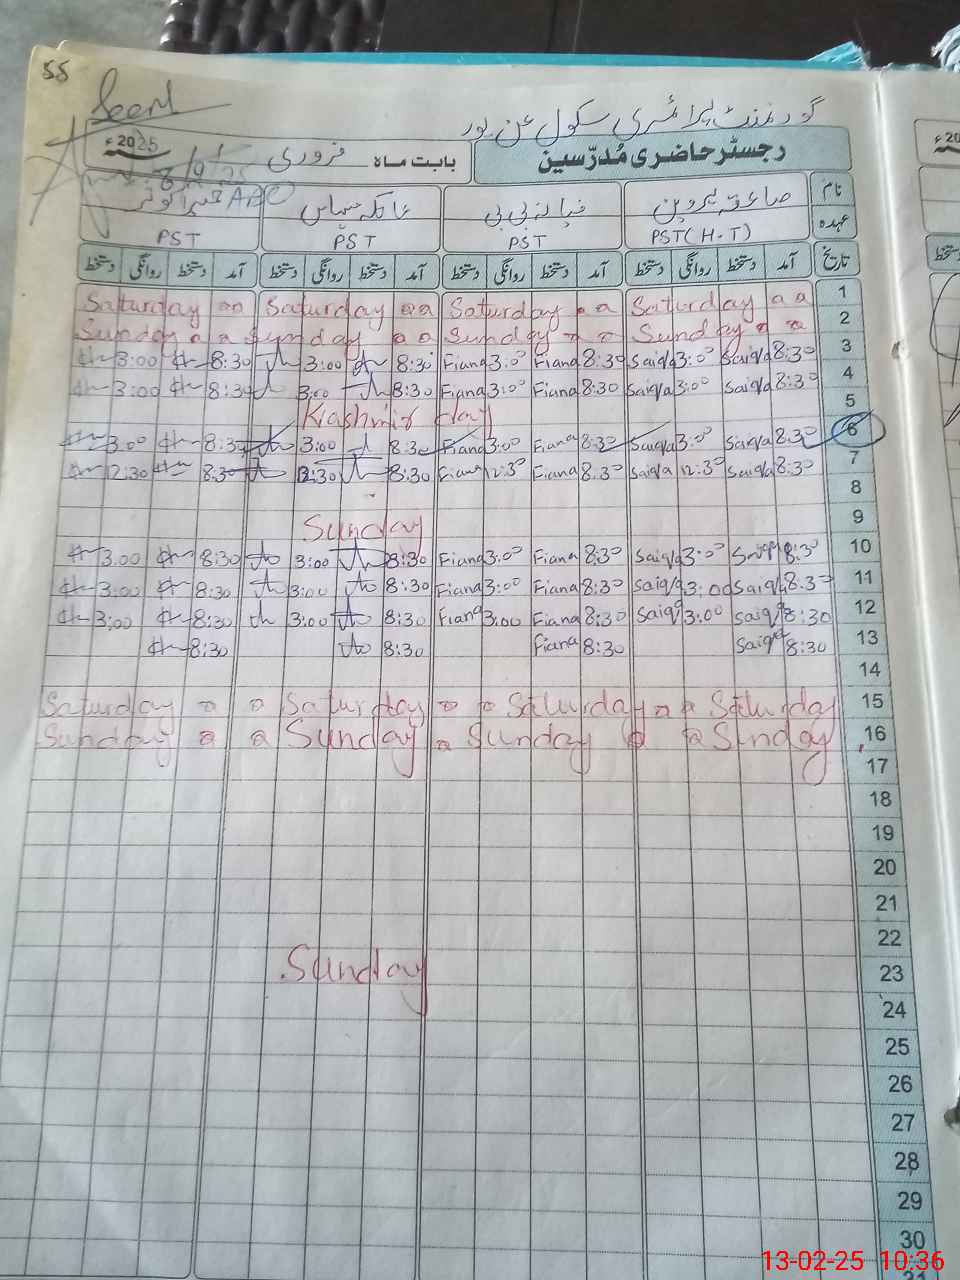 55
Seen
گورنمنٹ پرائمری سکول
رجسٹر حاضری مُدرّسین
بابت ماہ فروری 2025ء
نام صاعقہ پروین
عہدہ PST(H-T) PST PST PST
تاریخ آمد دستخط روانگی دستخط آمد دستخط روانگی دستخط آمد دستخط روانگی دستخط آمد دستخط روانگی دستخط
Saturday Saturday Saturday Saturday 1
Sunday Sunday Sunday Sunday 2
3:00 8:30 3:00 8:30 Fiana 3:00 Fiana 8:30 Saiqa 3:00 Saiqa 8:30 3
3:00 8:30 3:00 8:30 Fiana 3:00 Fiana 8:30 Saiqa 3:00 Saiqa 8:30 4
Kashmir day 5
3:00 8:30 3:00 8:30 Fiana 3:00 Fiana 8:30 Saiqa 3:00 Saiqa 8:30 6
12:30 8:30 12:30 8:30 Fiana 12:30 Fiana 8:30 Saiqa 12:30 Saiqa 8:30 7
8
Sunday 9
3:00 8:30 3:00 8:30 Fiana 3:00 Fiana 8:30 Saiqa 3:00 Saiqa 8:30 10
3:00 8:30 3:00 8:30 Fiana 3:00 Fiana 8:30 Saiqa 3:00 Saiqa 8:30 11
3:00 8:30 3:00 8:30 Fiana 3:00 Fiana 8:30 Saiqa 3:00 Saiqa 8:30 12
8:30 8:30 Fiana 8:30 Saiqa 8:30 13
14
Saturday Saturday Saturday Saturday 15
Sunday Sunday Sunday Sunday 16
17
18
19
20
21
22
Sunday 23
24
25
26
27
28
29
30
31
13-02-25 10:36